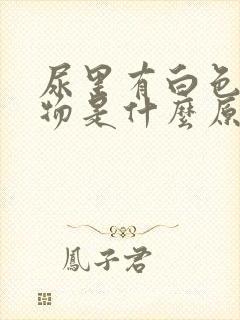 尿里有白色
物是什麼原
鳳子君